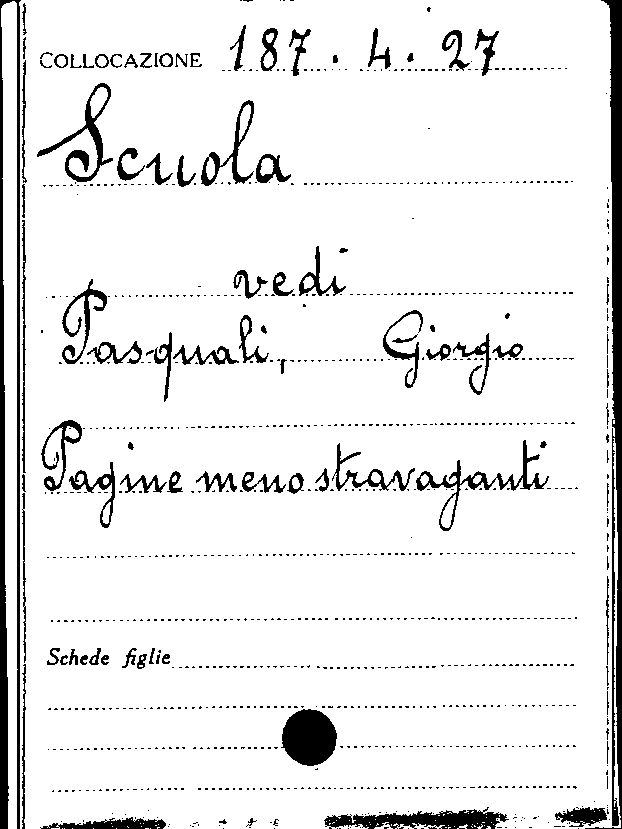 COLLOCAZIONE 187.4.27
Scuola
vedi
Pasquali, Giorgio
Pagine meno stravaganti
Schede figlie